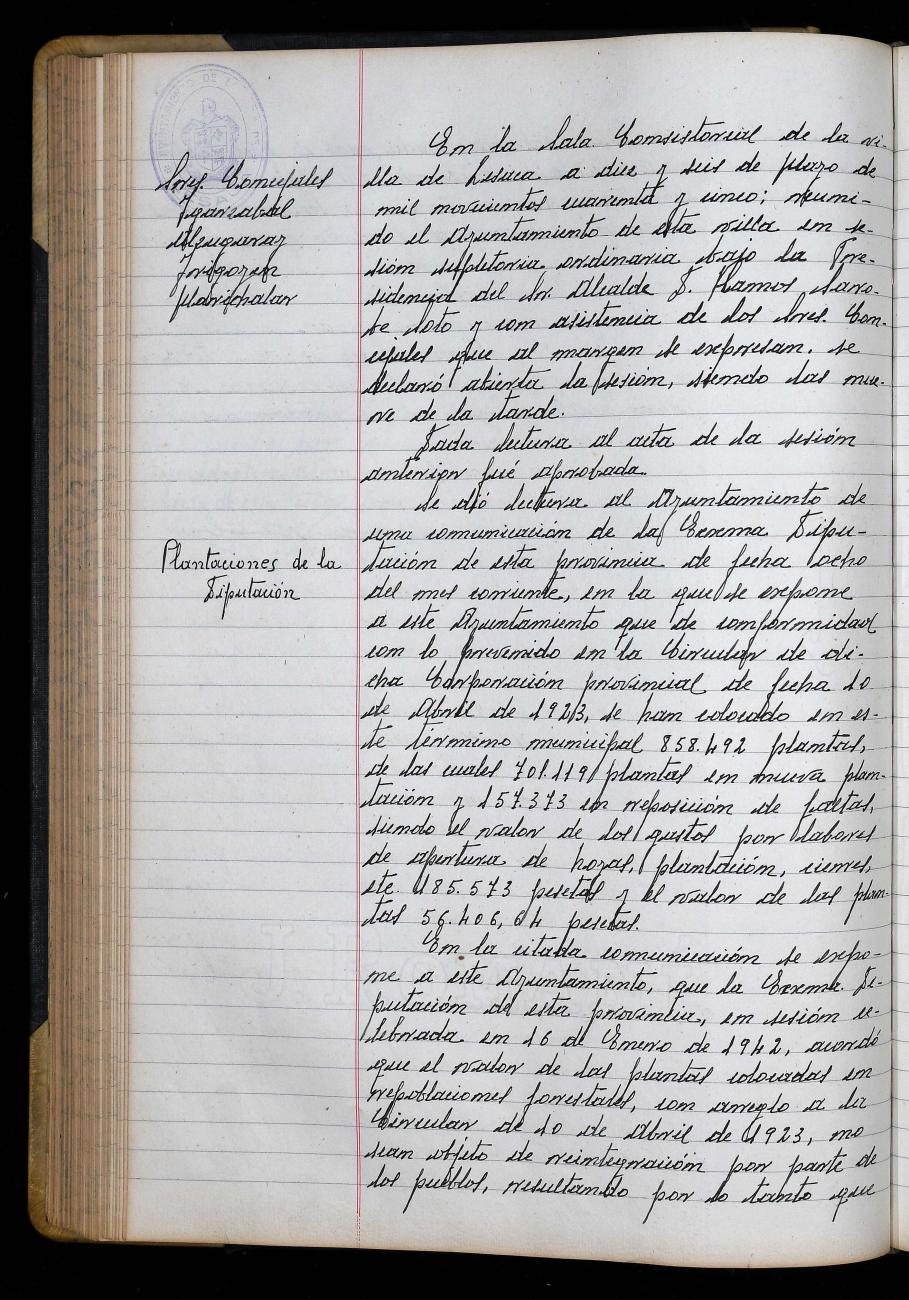 Sres. Concejales
Igarzabal
Irigoyen
Marichalar
En la Sala Consistorial de la vi-
lla de Lesaca a diez y seis de Mayo de
mil novecientos cuarenta y cinco; reuni-
do el Ayuntamiento de esta villa en se-
sión supletoria ordinaria bajo la Pre-
sidencia del Sr. Alcalde D. Ramos Saro-
be Soto y con asistencia de los Sres. Con-
cejales que al margen se expresan, se
declaró abierta la sesión, siendo las nue-
ve de la tarde.
Dada lectura al acta de la sesión
anterior fué aprobada.
Se dió lectura al Ayuntamiento de
una comunicación de la Excma Dipu-
Plantaciones de la
Diputación
tación de esta provincia de fecha ocho
del mes corriente, en la que se expone
a este Ayuntamiento que de conformidad
con lo prevenido en la Circular de di-
cha Corporación provincial de fecha 10
de Abril de 1923, se han colocado en es-
te término municipal 858.492 plantas,
de las cuales 701.119 plantas en nueva plan-
tación y 157.373 en reposición de faltas,
siendo el valor de los gastos por labores
de apertura de hoyas, plantación, cierres,
etc. 185.573 pesetas y el valor de las plan-
tas 56.406,64 pesetas.
En la citada comunicación se expo-
ne a este Ayuntamiento, que la Excma. Di-
putación de esta provincia, en sesión ce-
lebrada en 16 de Enero de 1942, acordó
que el valor de las plantas colocadas en
repoblaciones forestales, con arreglo a la
Circular de 10 de Abril de 1923, no
sean objeto de reintegración por parte de
los pueblos, resultando por lo tanto que